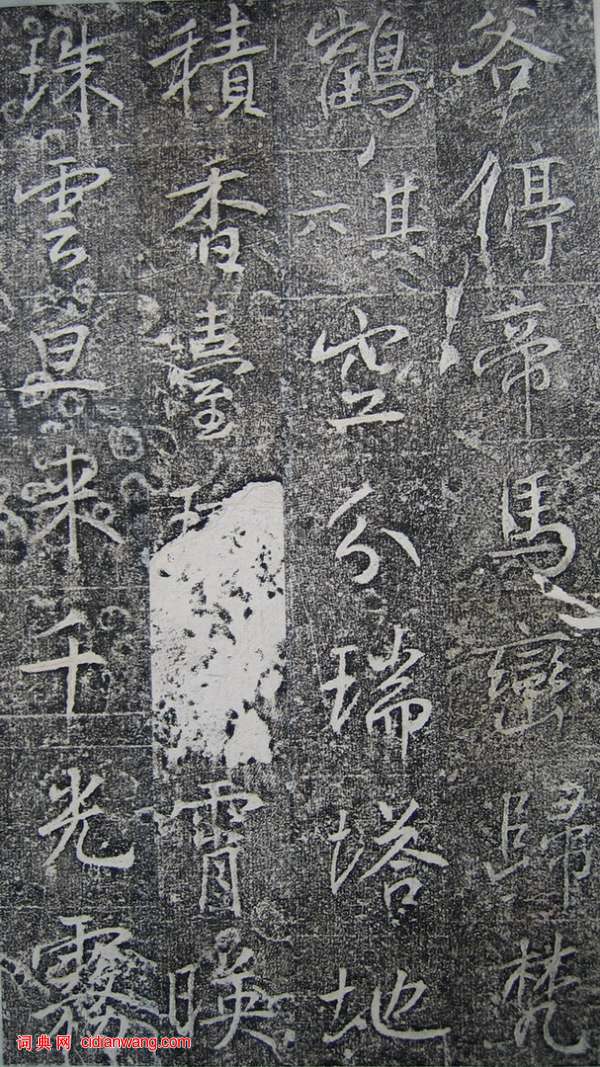 谷停帝馬巒歸梵
鶴其六空分瑞塔地
積香臺霄暎
珠雲来千光霧
词典网 cidianwang.com